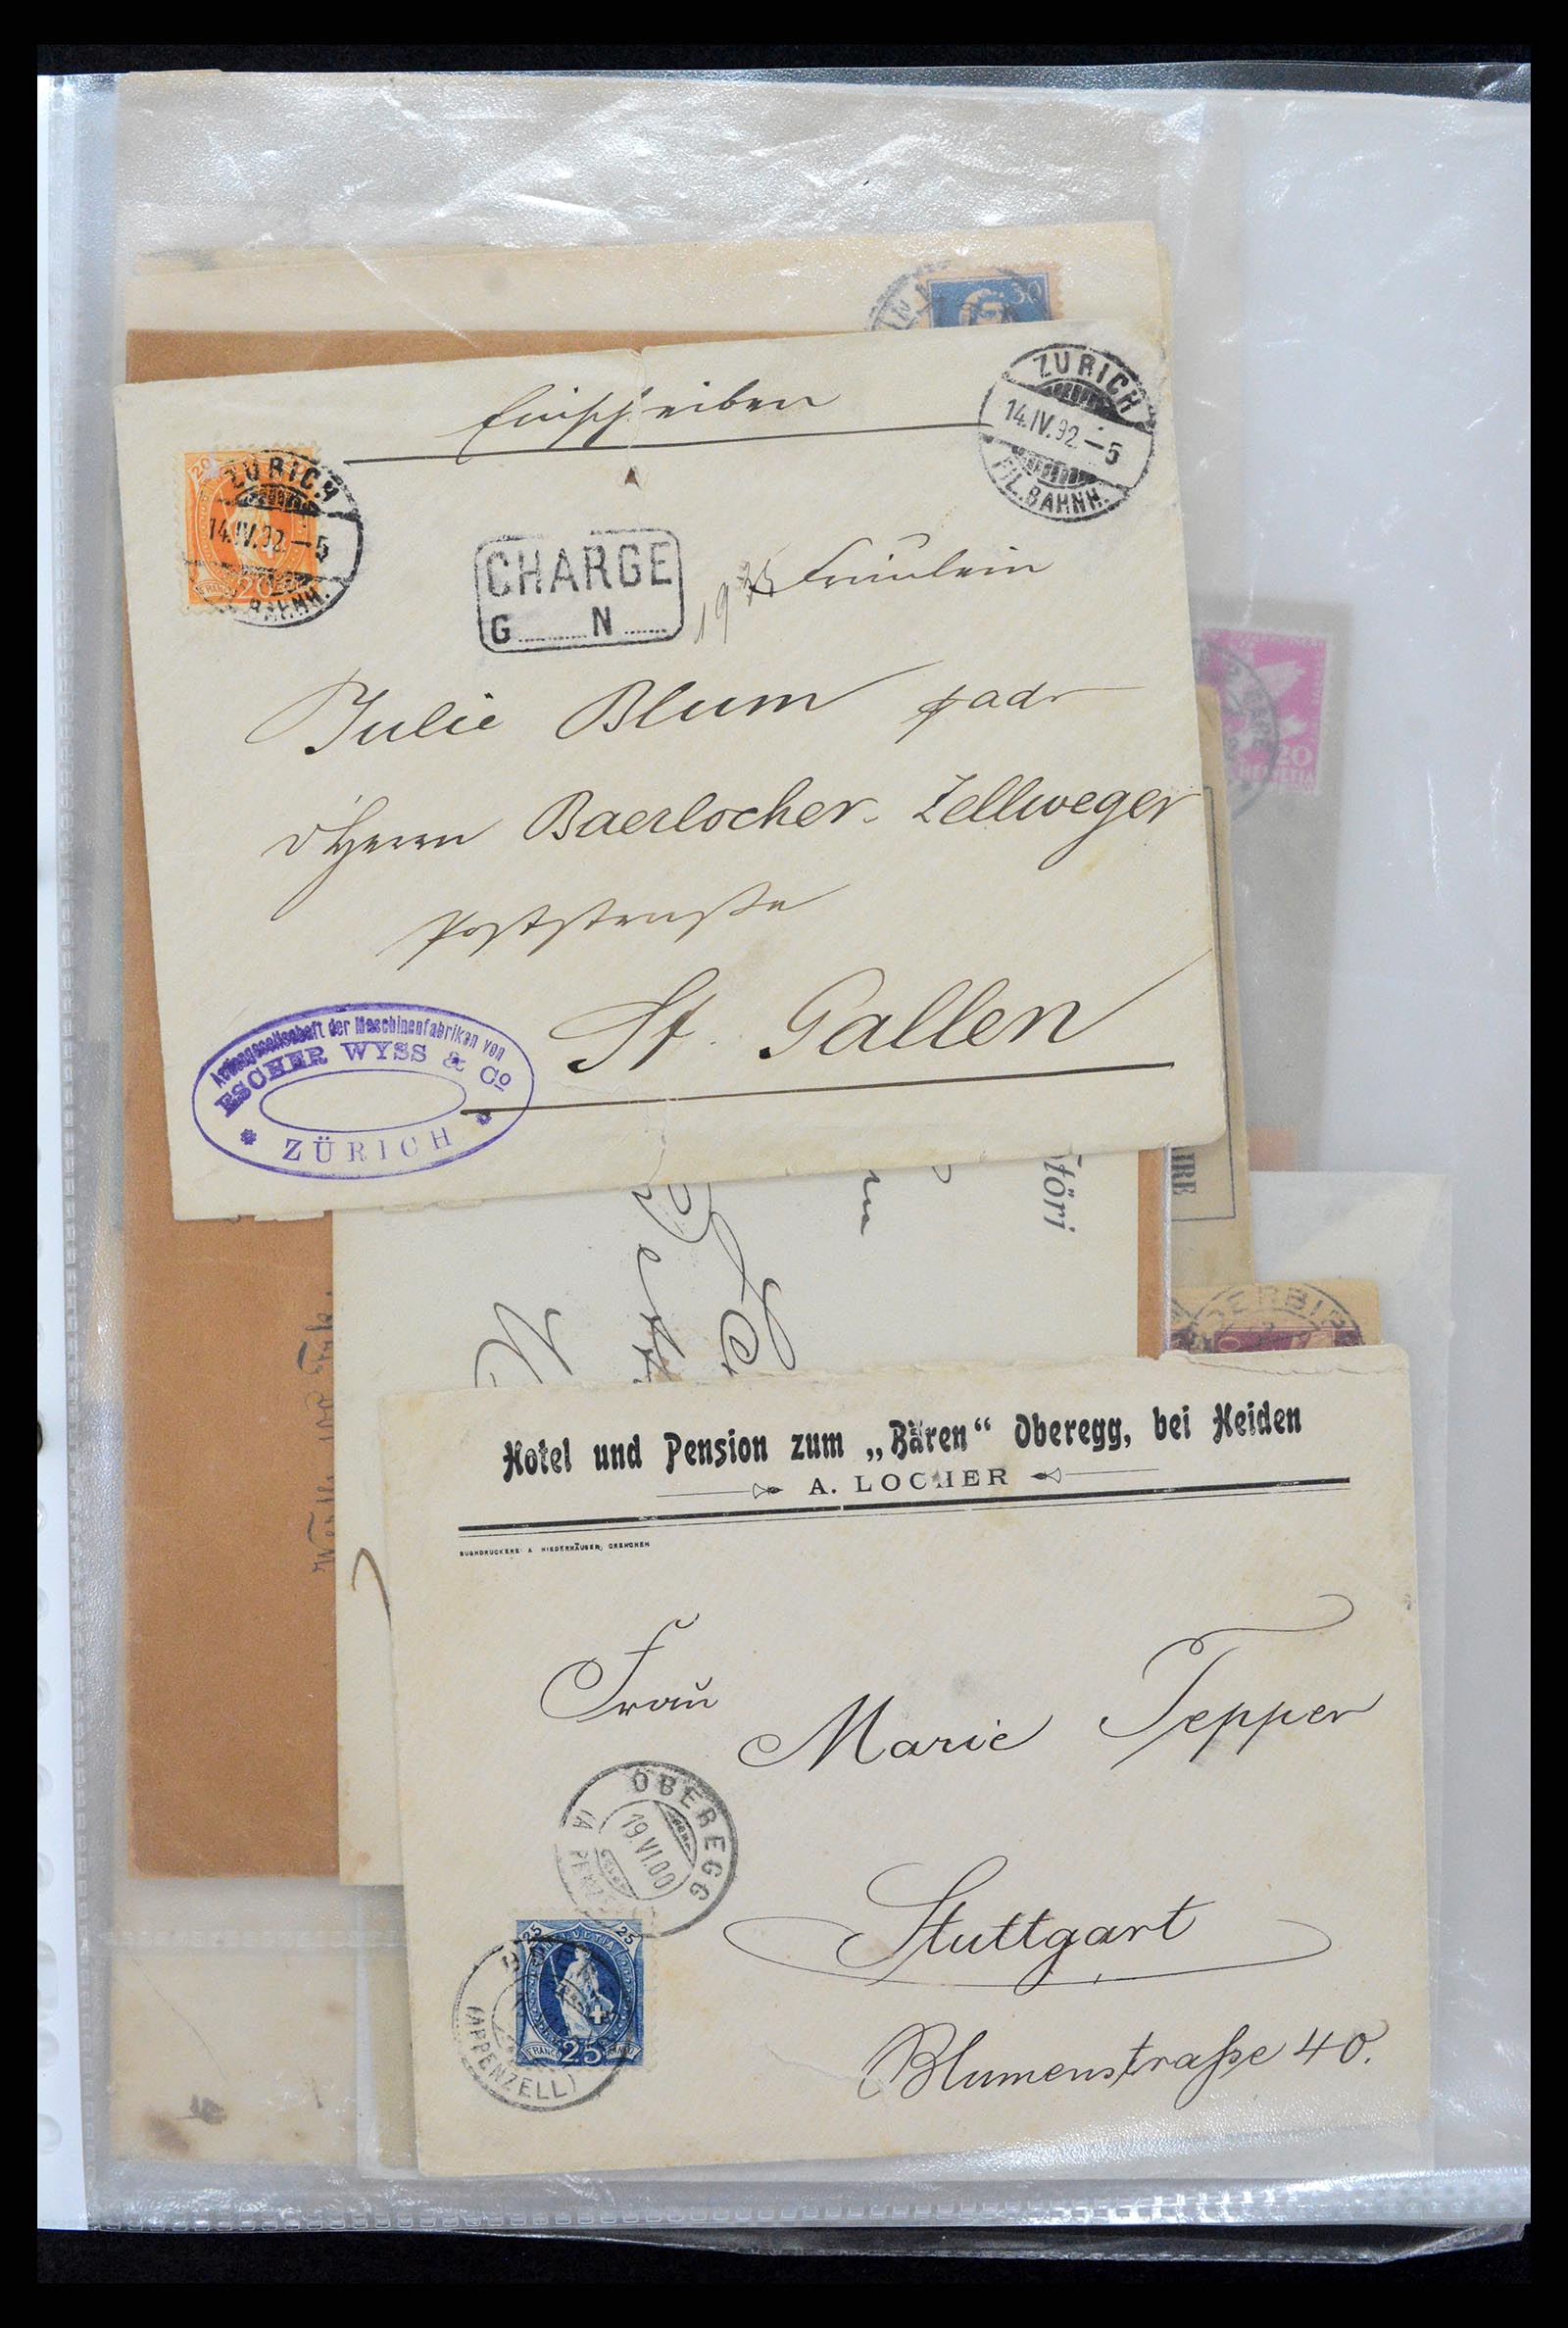 30
ZÜRICH
14.IV.92.–5
FIL.BAHNH.
Einschreiben
20
ZÜRICH
14.IV.92.–5
BAHNH.
FRANCO 20
CHARGE
G N
Fräulein
Julie Blum padr
Herrn Baerlocher-Zellweger
Poststrasse
St. Gallen
Actiengesellschaft der Maschinenfabriken von
ESCHER WYSS & Cº
ZÜRICH
20
HELVETIA
töri
AIRE
Hotel und Pension zum „Bären“ Oberegg, bei Heiden
A. LOCHER
BUCHDRUCKEREI A NIEDERHÄUSER, GRENCHEN
Frau
Marie Tepper
Stuttgart
Blumenstraße 40.
OBEREGG
19.VI.00
25 HELVETIA 25
FRANCO 25
(APPENZELL)